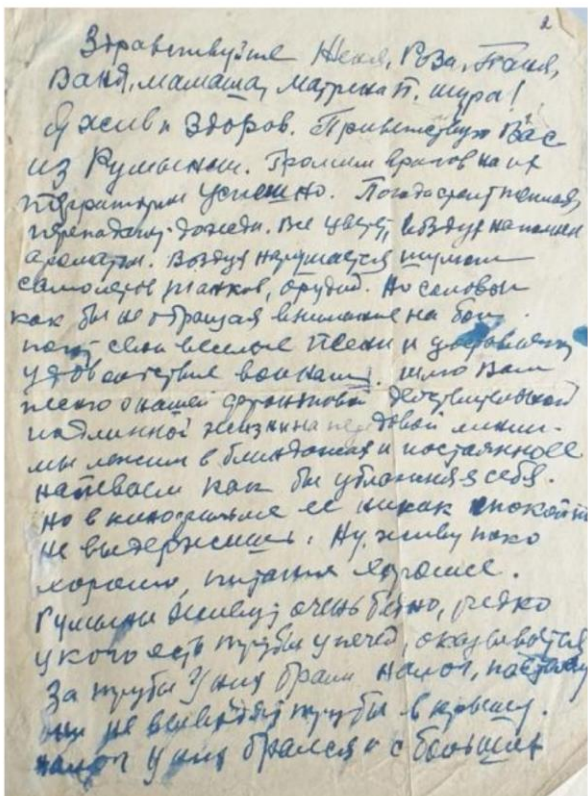 2
Здравствуйте Женя, Роза, Таня,
Ваня, мамаша, Матрена П. Шура!
Я жив и здоров. Приветствую Вас
из Румынии. Громим врагов на их
территории успешно. Погода стоит теплая,
перепадают дожди. Все цветет, воздух наполнен
ароматом. Воздух нарушается шумом
самолетов танков, орудий. Но соловьи
как бы не обращая внимание на бои
поют свои веселые песни и
удовольствие воинам. шлю Вам
песню о нашей фронтовой действительной
подлинной жизни на передовой линии.
мы лежим в блиндажах и постоянно ее
напеваем как бы себя.
но в кинофильме ее никак спокойно
не выдержишь. Ну, живу пока
хорошо, питания хорошие.
Румыны живут очень бедно, редко
у кого есть трубы у печей, оказывается
за трубы у них брали налог, поэтому
они не выводят трубы в крышу.
налог у них брался и с больших